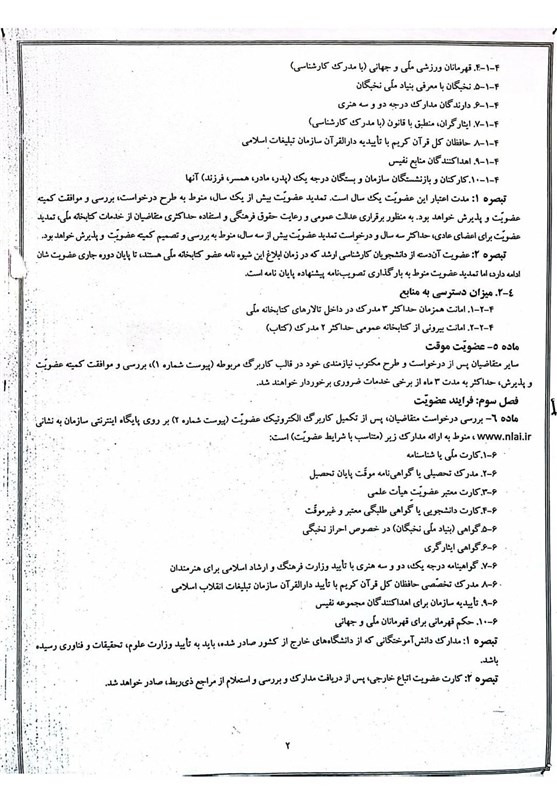 ۴-۱-۴. قهرمانان ورزشی ملّی و جهانی (با مدرک کارشناسی)
۵-۱-۴. نخبگان با معرفی بنیاد ملّی نخبگان
۶-۱-۴. دارندگان مدارک درجه دو و سه هنری
۷-۱-۴. ایثارگران، منطبق با قانون (با مدرک کارشناسی)
۸-۱-۴. حافظان کل قرآن کریم با تأییدیه دارالقرآن سازمان تبلیغات اسلامی
۹-۱-۴. اهداکنندگان منابع نفیس
۱۰-۱-۴. کارکنان و بازنشستگان سازمان و بستگان درجه یک (پدر، مادر، همسر، فرزند) آنها
تبصره ۱: مدت اعتبار این عضویّت یک سال است. تمدید عضویّت بیش از یک سال، منوط به طرح درخواست، بررسی و موافقت کمیته
عضویّت و پذیرش خواهد بود. به منظور برقراری عدالت عمومی و رعایت حقوق فرهنگی و استفاده حداکثری متقاضیان از خدمات کتابخانه ملّی، تمدید
عضویّت برای اعضای عادی، حداکثر سه سال و درخواست تمدید عضویّت بیش از سه سال، منوط به بررسی و تصمیم کمیته عضویّت و پذیرش خواهد بود.
تبصره ۲: عضویت آن‌دسته از دانشجویان کارشناسی ارشد که در زمان ابلاغ این شیوه نامه عضو کتابخانه ملّی هستند، تا پایان دوره جاری عضویت شان
ادامه دارد، اما تمدید عضویت منوط به بارگذاری تصویب‌نامه پیشنهاده پایان نامه است.
۲-۴. میزان دسترسی به منابع
۱-۲-۴. امانت همزمان حداکثر ۳ مدرک در داخل تالارهای کتابخانه ملّی
۲-۲-۴. امانت بیرونی از کتابخانه عمومی حداکثر ۲ مدرک (کتاب)
ماده ۵- عضویّت موقت
سایر متقاضیان پس از درخواست و طرح مکتوب نیازمندی خود در قالب کاربرگ مربوطه (پیوست شماره ۱)، بررسی و موافقت کمیته عضویّت و
پذیرش، حداکثر به مدت ۳ ماه از برخی خدمات ضروری برخوردار خواهند شد.
فصل سوم: فرایند عضویّت
ماده ۶- بررسی درخواست متقاضیان، پس از تکمیل کاربرگ الکترونیک عضویّت (پیوست شماره ۲) بر روی پایگاه اینترنتی سازمان به نشانی
www.nlai.ir ، منوط به ارائه مدارک زیر (متناسب با شرایط عضویّت) است:
۱-۶. کارت ملّی یا شناسنامه
۲-۶. مدرک تحصیلی یا گواهی‌نامه موقّت پایان تحصیل
۳-۶. کارت معتبر عضویّت هیأت علمی
۴-۶. کارت دانشجویی یا گواهی طلبگی معتبر و غیرموقّت
۵-۶. گواهی (بنیاد ملّی نخبگان) در خصوص احراز نخبگی
۶-۶. گواهی ایثارگری
۷-۶. گواهینامه درجه یک، دو و سه هنری با تأیید وزارت فرهنگ و ارشاد اسلامی برای هنرمندان
۸-۶. مدرک تخصّصی حافظان کل قرآن کریم با تأیید دارالقرآن سازمان تبلیغات انقلاب اسلامی
۹-۶. تأییدیه سازمان برای اهداکنندگان مجموعه نفیس
۱۰-۶. حکم قهرمانی برای قهرمانان ملّی و جهانی
تبصره ۱: مدارک دانش‌آموختگانی که از دانشگاه‌های خارج از کشور صادر شده، باید به تأیید وزارت علوم، تحقیقات و فناوری رسیده
باشد.
تبصره ۲: کارت عضویت اتباع خارجی، پس از دریافت مدارک و بررسی و استعلام از مراجع ذی‌ربط، صادر خواهد شد.
۲